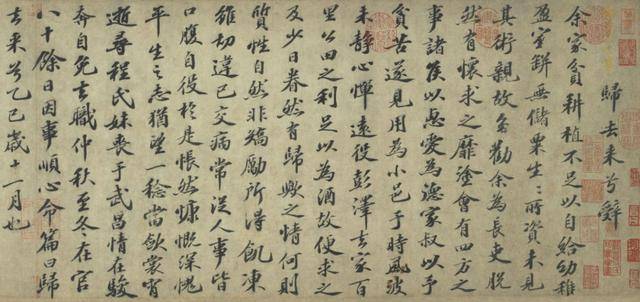 歸去来兮辭
余家貧耕植不足以自給幼稚
盈室缾無儲粟生々所資未見
其術親故多勸余為長吏脫
然有懷求之靡塗會有四方之
事諸侯以惠愛為德家叔以予
貧苦遂見用為小邑于時風波
未静心憚遠役彭澤去家百
里公田之利足以為酒故便求之
及少日眷然有歸歟之情何則
質性自然非矯勵所得飢凍
雖切違己交病常從人事皆
口腹自役於是悵然慷慨深愧
平生之志猶望一稔當歛裳宵
逝尋程氏妹喪于武昌情在駿
奔自免去職仲秋至冬在官
八十餘日因事順心命篇曰歸
去来兮乙巳歲十一月也